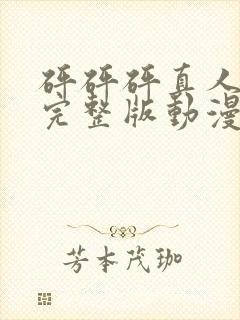 砰砰砰真人
完整版動漫
芳本茂珈